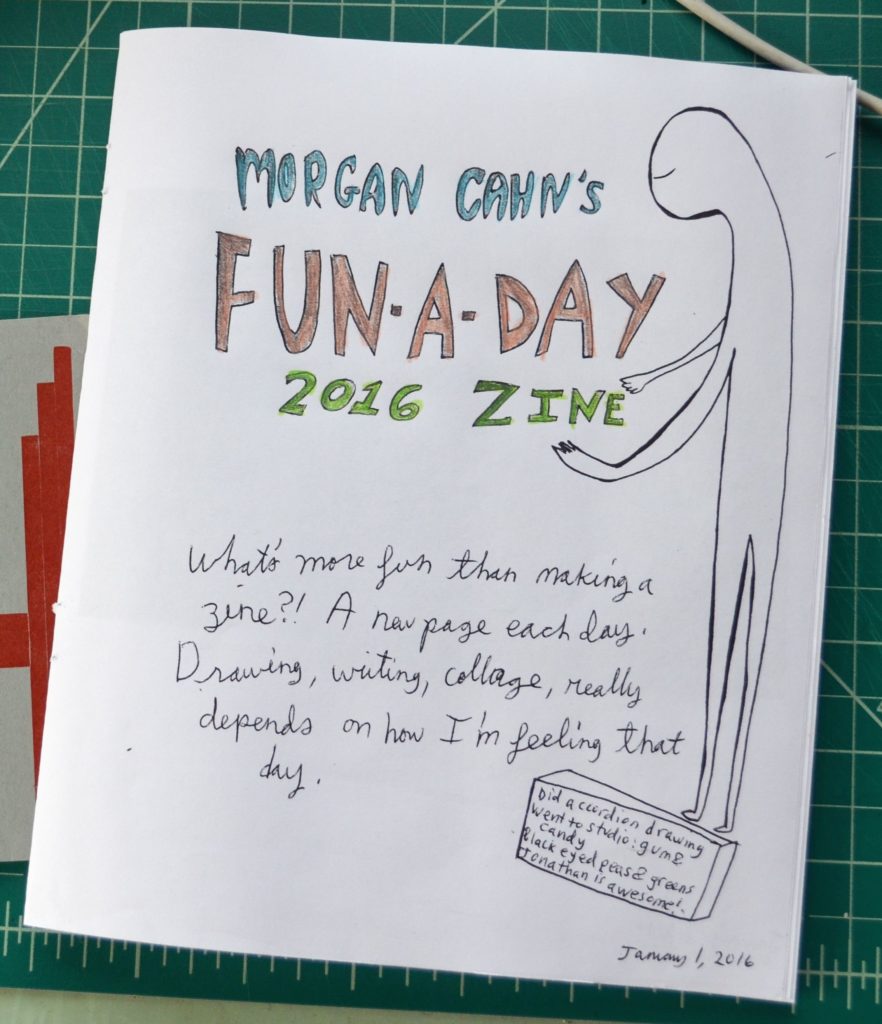 MORGAN CAHN'S
FUN-A-DAY
2016 ZINE
What's more fun than making a
zine?! A new page each day.
Drawing, writing, collage, really
depends on how I'm feeling that
day.
Did accordion drawing
Went to studio: gum &
candy
Black eyed peas & greens
Jonathan is awesome!
January 1, 2016